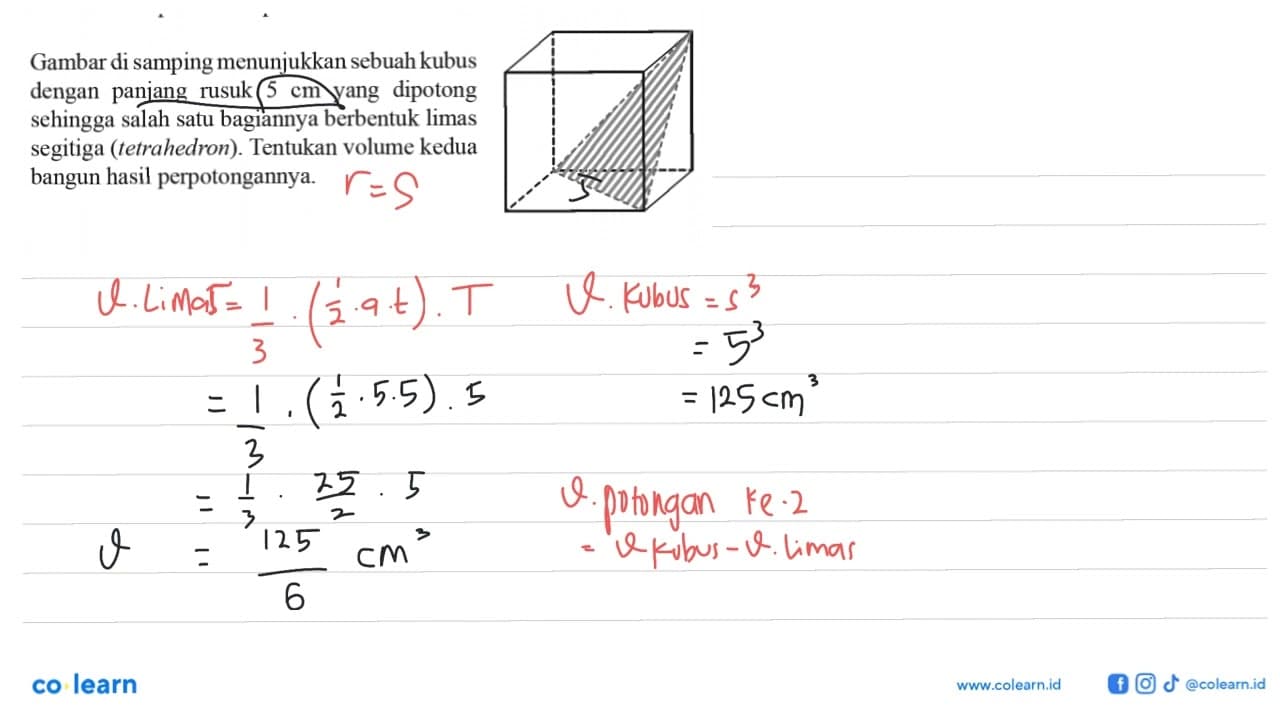 Gambar di samping menunjukkan sebuah kubus
dengan panjang rusuk 5 cm yang dipotong
sehingga salah satu bagiannya berbentuk limas
segitiga (tetrahedron). Tentukan volume kedua
bangun hasil perpotongannya.
r=S
5
V.Limas = 1/3 . (1/2 .a.t) . T
= 1/3 . (1/2 . 5.5) . 5
= 1/3 . 25/2 . 5
V = 125/6 cm³
V. Kubus = s³
= 5³
= 125 cm³
V. potongan ke-2
= V Kubus - V. Limas
co learn
www.colearn.id
@colearn.id